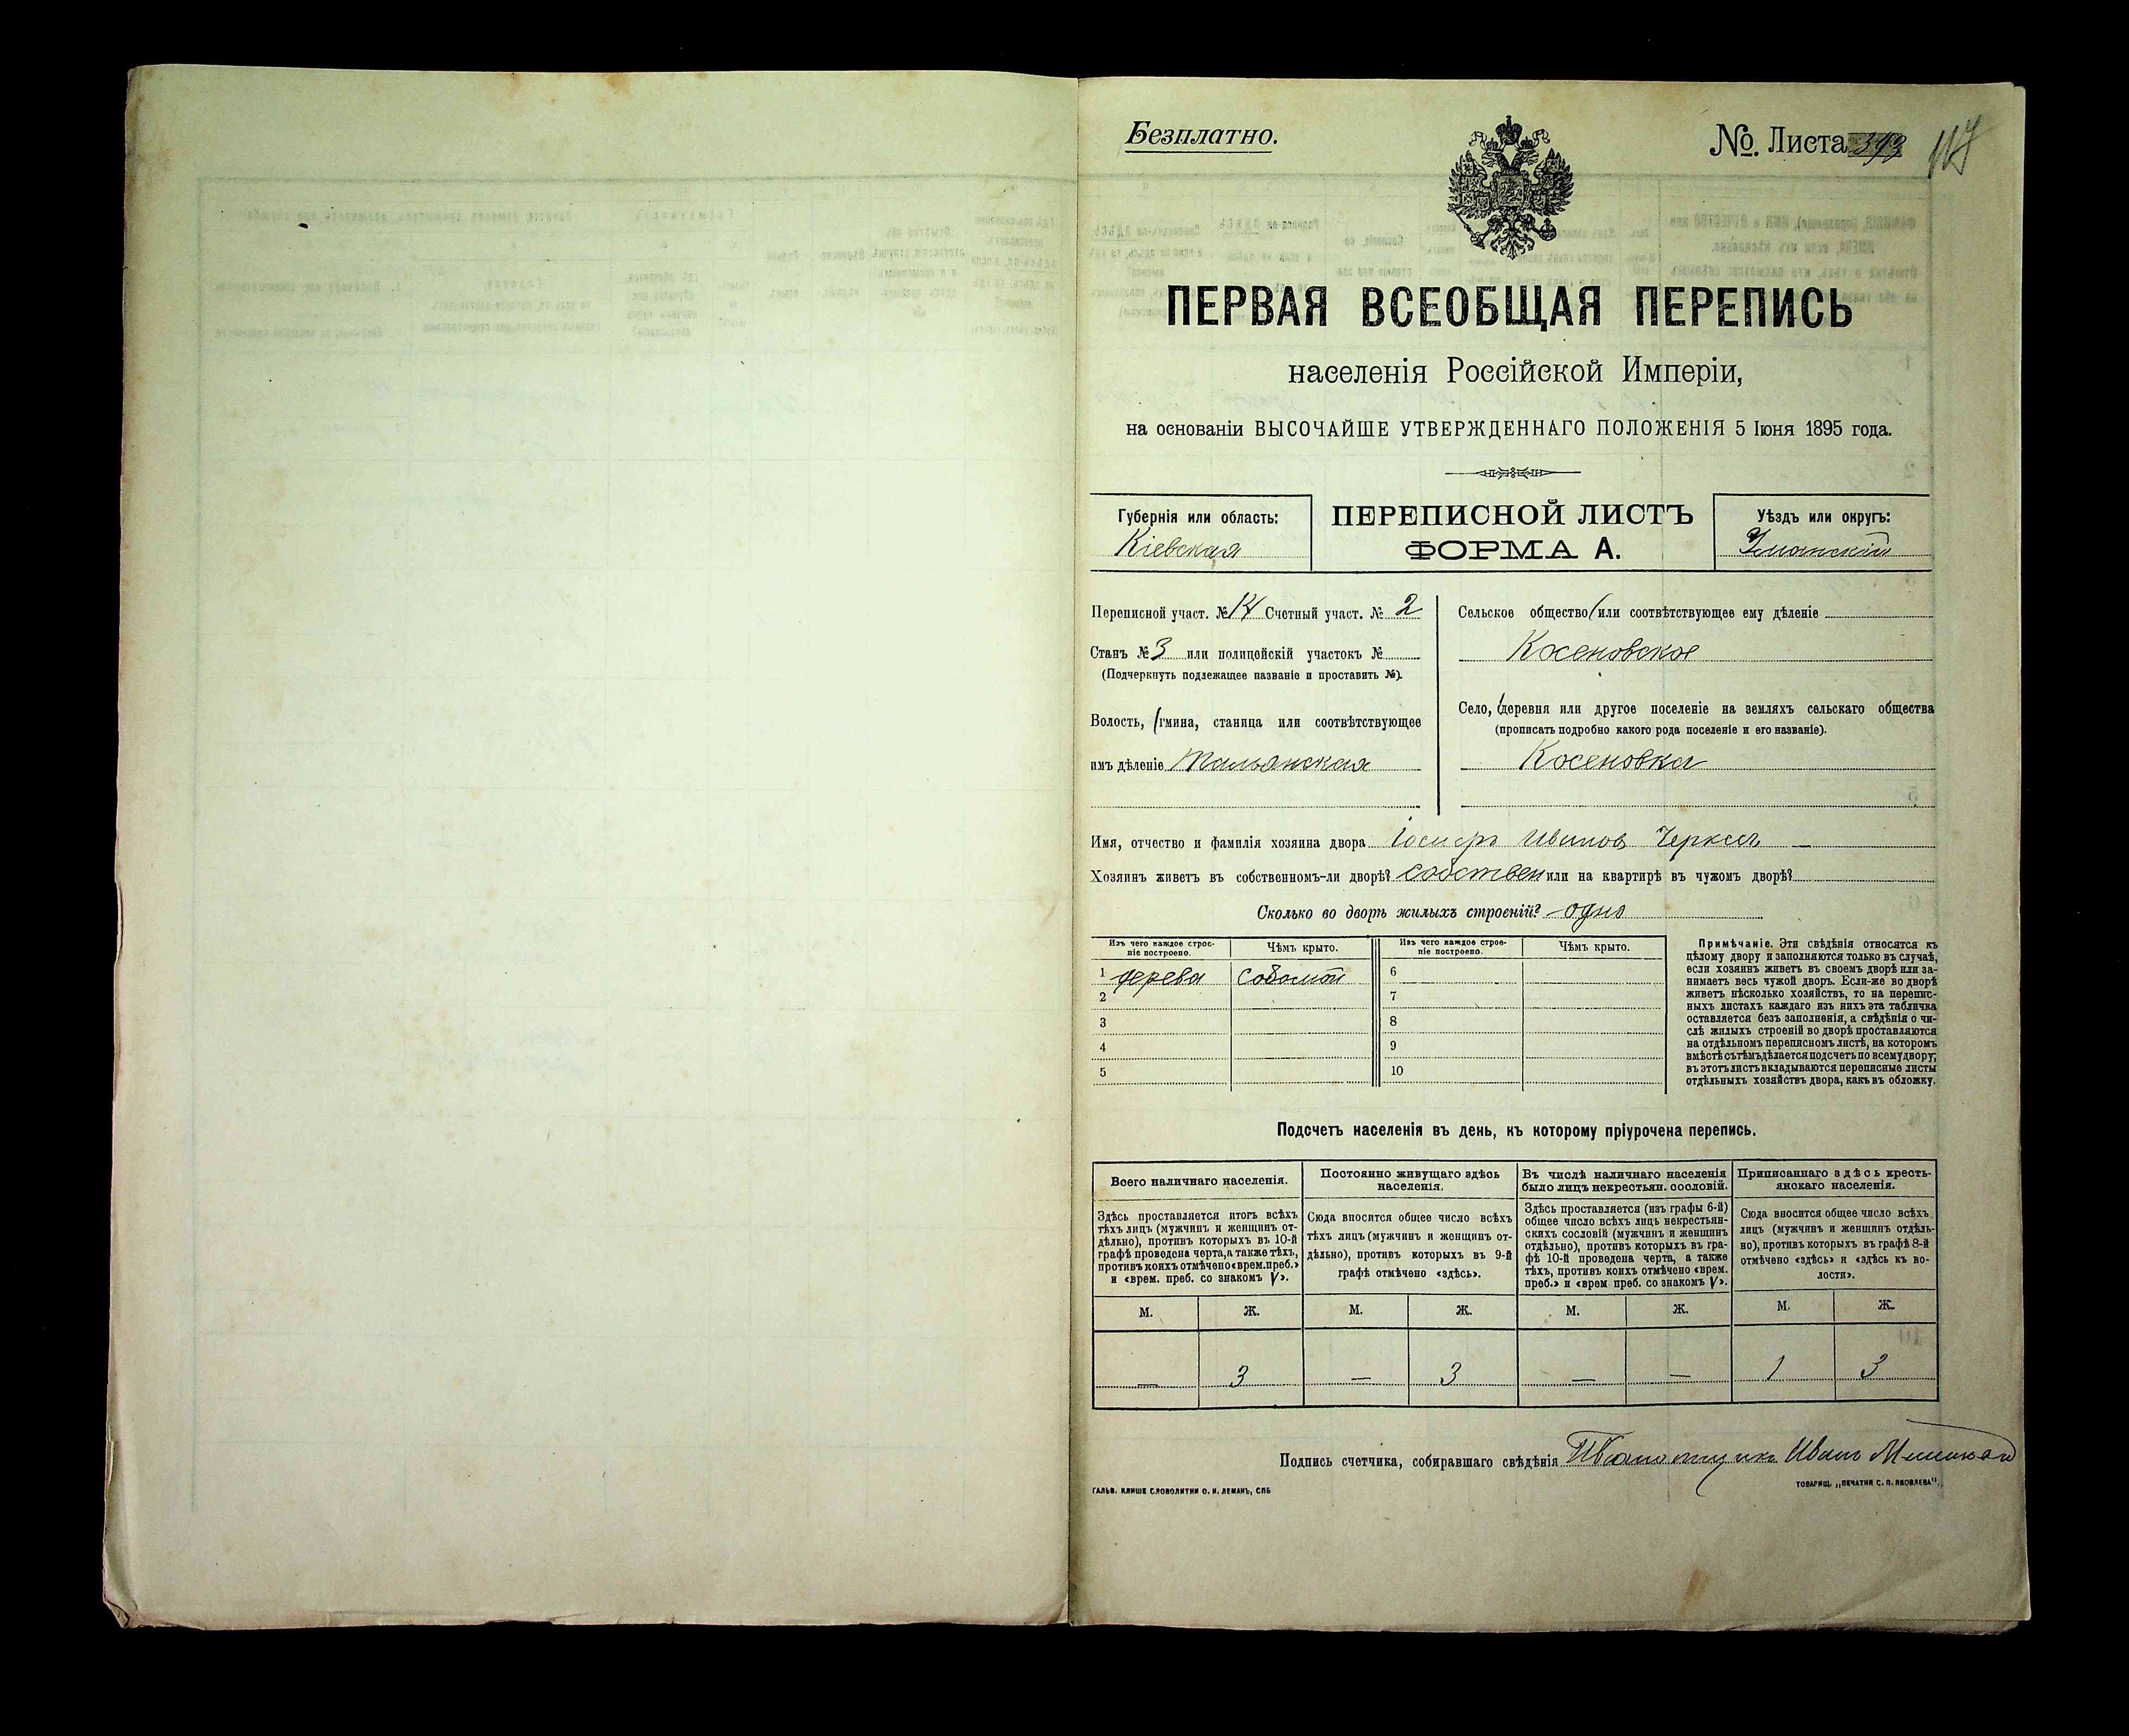 Безплатно.
№ Листа 393 117
ПЕРВАЯ ВСЕОБЩАЯ ПЕРЕПИСЬ
населенія Россійской Имперіи,
на основаніи ВЫСОЧАЙШЕ УТВЕРЖДЕННАГО ПОЛОЖЕНІЯ 5 Іюня 1895 года.
Губернія или область:
Кіевская
ПЕРЕПИСНОЙ ЛИСТЪ
ФОРМА А.
Уѣздъ или округъ:
Уманскій
Переписной участ. № 14 Счетный участ. № 2
Станъ № 3 или полицейскій участокъ №
(Подчеркнуть подлежащее названіе и проставить №).
Волость, (гмина, станица или соотвѣтствующее
имъ дѣленіе Тальянская
Сельское общество (или соотвѣтствующее ему дѣленіе
Косеновское
Село, (деревня или другое поселеніе на земляхъ сельскаго общества
(прописать подробно какого рода поселеніе и его названіе).
Косеновка
Имя, отчество и фамилія хозяина двора Іосифъ Ивановъ Черкасъ
Хозяинъ живетъ въ собственномъ-ли дворѣ? собствен или на квартирѣ въ чужомъ дворѣ?
Сколько во дворѣ жилыхъ строеній? одно
Изъ чего каждое строе-
ніе построено.
Чѣмъ крыто.
Изъ чего каждое строе-
ніе построено.
Чѣмъ крыто.
1 дерева соломой 6
2 7
3 8
4 9
5 10
Примѣчаніе. Эти свѣдѣнія относятся къ
цѣлому двору и заполняются только въ случаѣ,
если хозяинъ живетъ въ своемъ дворѣ или за-
нимаетъ весь чужой дворъ. Если-же во дворѣ
живетъ нѣсколько хозяйствъ, то на перепис-
ныхъ листахъ каждаго изъ нихъ эта табличка
оставляется безъ заполненія, а свѣдѣнія о чи-
слѣ жилыхъ строеній во дворѣ проставляются
на отдѣльномъ переписномъ листѣ, на которомъ
вмѣстѣ съ тѣмъ дѣлается подсчетъ по всему двору;
въ этотъ листъ вкладываются переписные листы
отдѣльныхъ хозяйствъ двора, какъ въ обложку.
Подсчетъ населенія въ день, къ которому пріурочена перепись.
Всего наличнаго населенія.
Здѣсь проставляется итогъ всѣхъ
тѣхъ лицъ (мужчинъ и женщинъ от-
дѣльно), противъ которыхъ въ 10-й
графѣ проведена черта, а также тѣхъ,
противъ коихъ отмѣчено «врем. преб.»
и «врем. преб. со знакомъ V».
Постоянно живущаго здѣсь
населенія.
Сюда вносится общее число всѣхъ
тѣхъ лицъ (мужчинъ и женщинъ от-
дѣльно), противъ которыхъ въ 9-й
графѣ отмѣчено «здѣсь».
Въ числѣ наличнаго населенія
было лицъ некрестьян. сословій.
Здѣсь проставляется (изъ графы 6-й)
общее число всѣхъ лицъ некрестьян-
скихъ сословій (мужчинъ и женщинъ
отдѣльно), противъ которыхъ въ гра-
фѣ 10-й проведена черта, а также
тѣхъ, противъ коихъ отмѣчено «врем.
преб.» и «врем. преб. со знакомъ V».
Приписаннаго здѣсь кресть-
янскаго населенія.
Сюда вносится общее число всѣхъ
лицъ (мужчинъ и женщинъ отдѣль-
но), противъ которыхъ въ графѣ 8-й
отмѣчено «здѣсь» и «здѣсь къ во-
лости».
М. Ж. М. Ж. М. Ж. М. Ж.
— 3 — 3 — — 1 3
Подпись счетчика, собиравшаго свѣдѣнія Иванъ
ГАЛЬВ. КЛИШЕ СЛОВОЛИТНИ О. И. ЛЕМАНЪ, СПБ
ТОВАРИЩ. „ПЕЧАТНЯ С. П. ЯКОВЛЕВА".